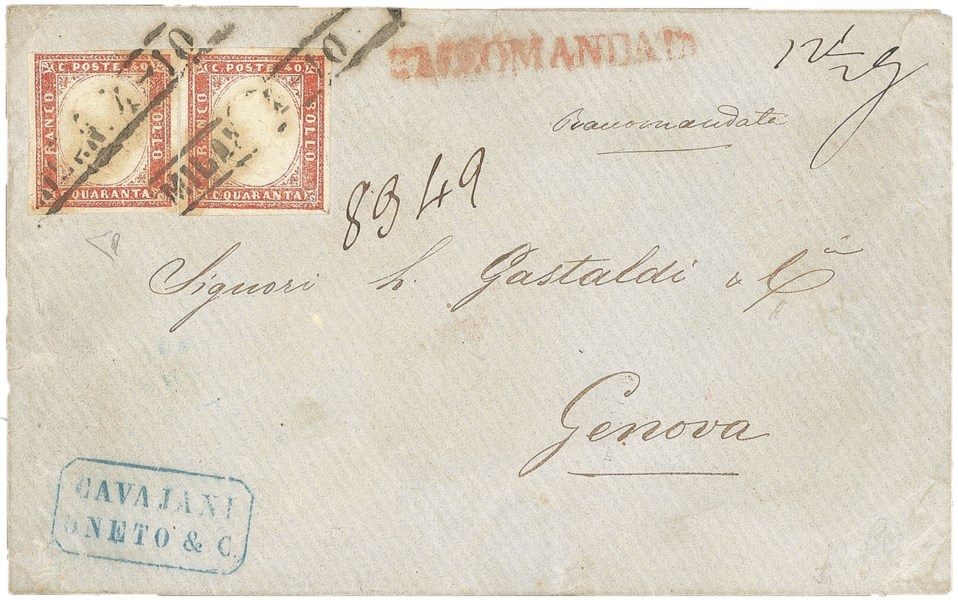 C. POSTE 40
FRANCO
BOLLO
C. QUARANTA
C. POSTE 40
FRANCO
BOLLO
C. QUARANTA
MILANO
Racomandata
8949
Signori L. Gastaldi & C.ia
Genova
CAVAJANI
ONETO & C.